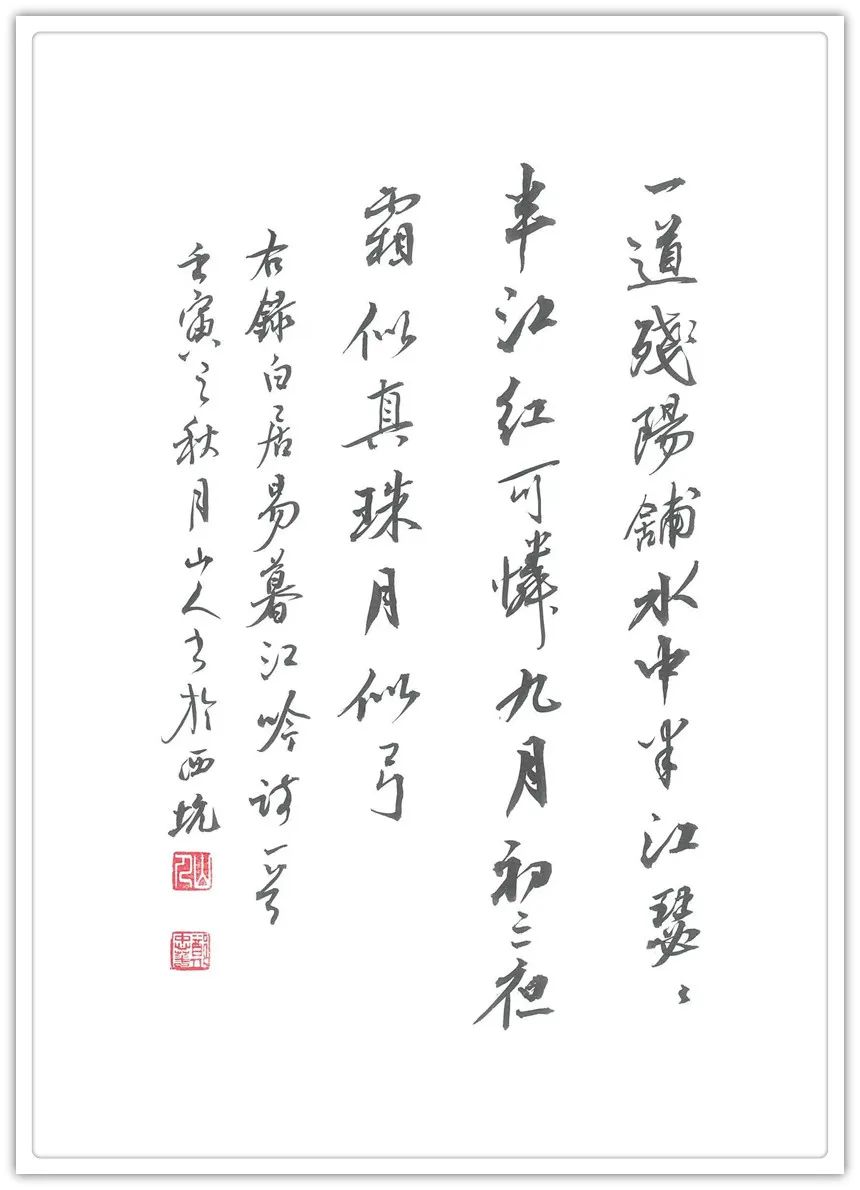 一道殘陽舖水中半江瑟〻
半江紅可憐九月初三夜
霜似真珠月似弓
右錄白居易暮江吟詩一首
壬寅之秋月山人書於西坑
山人